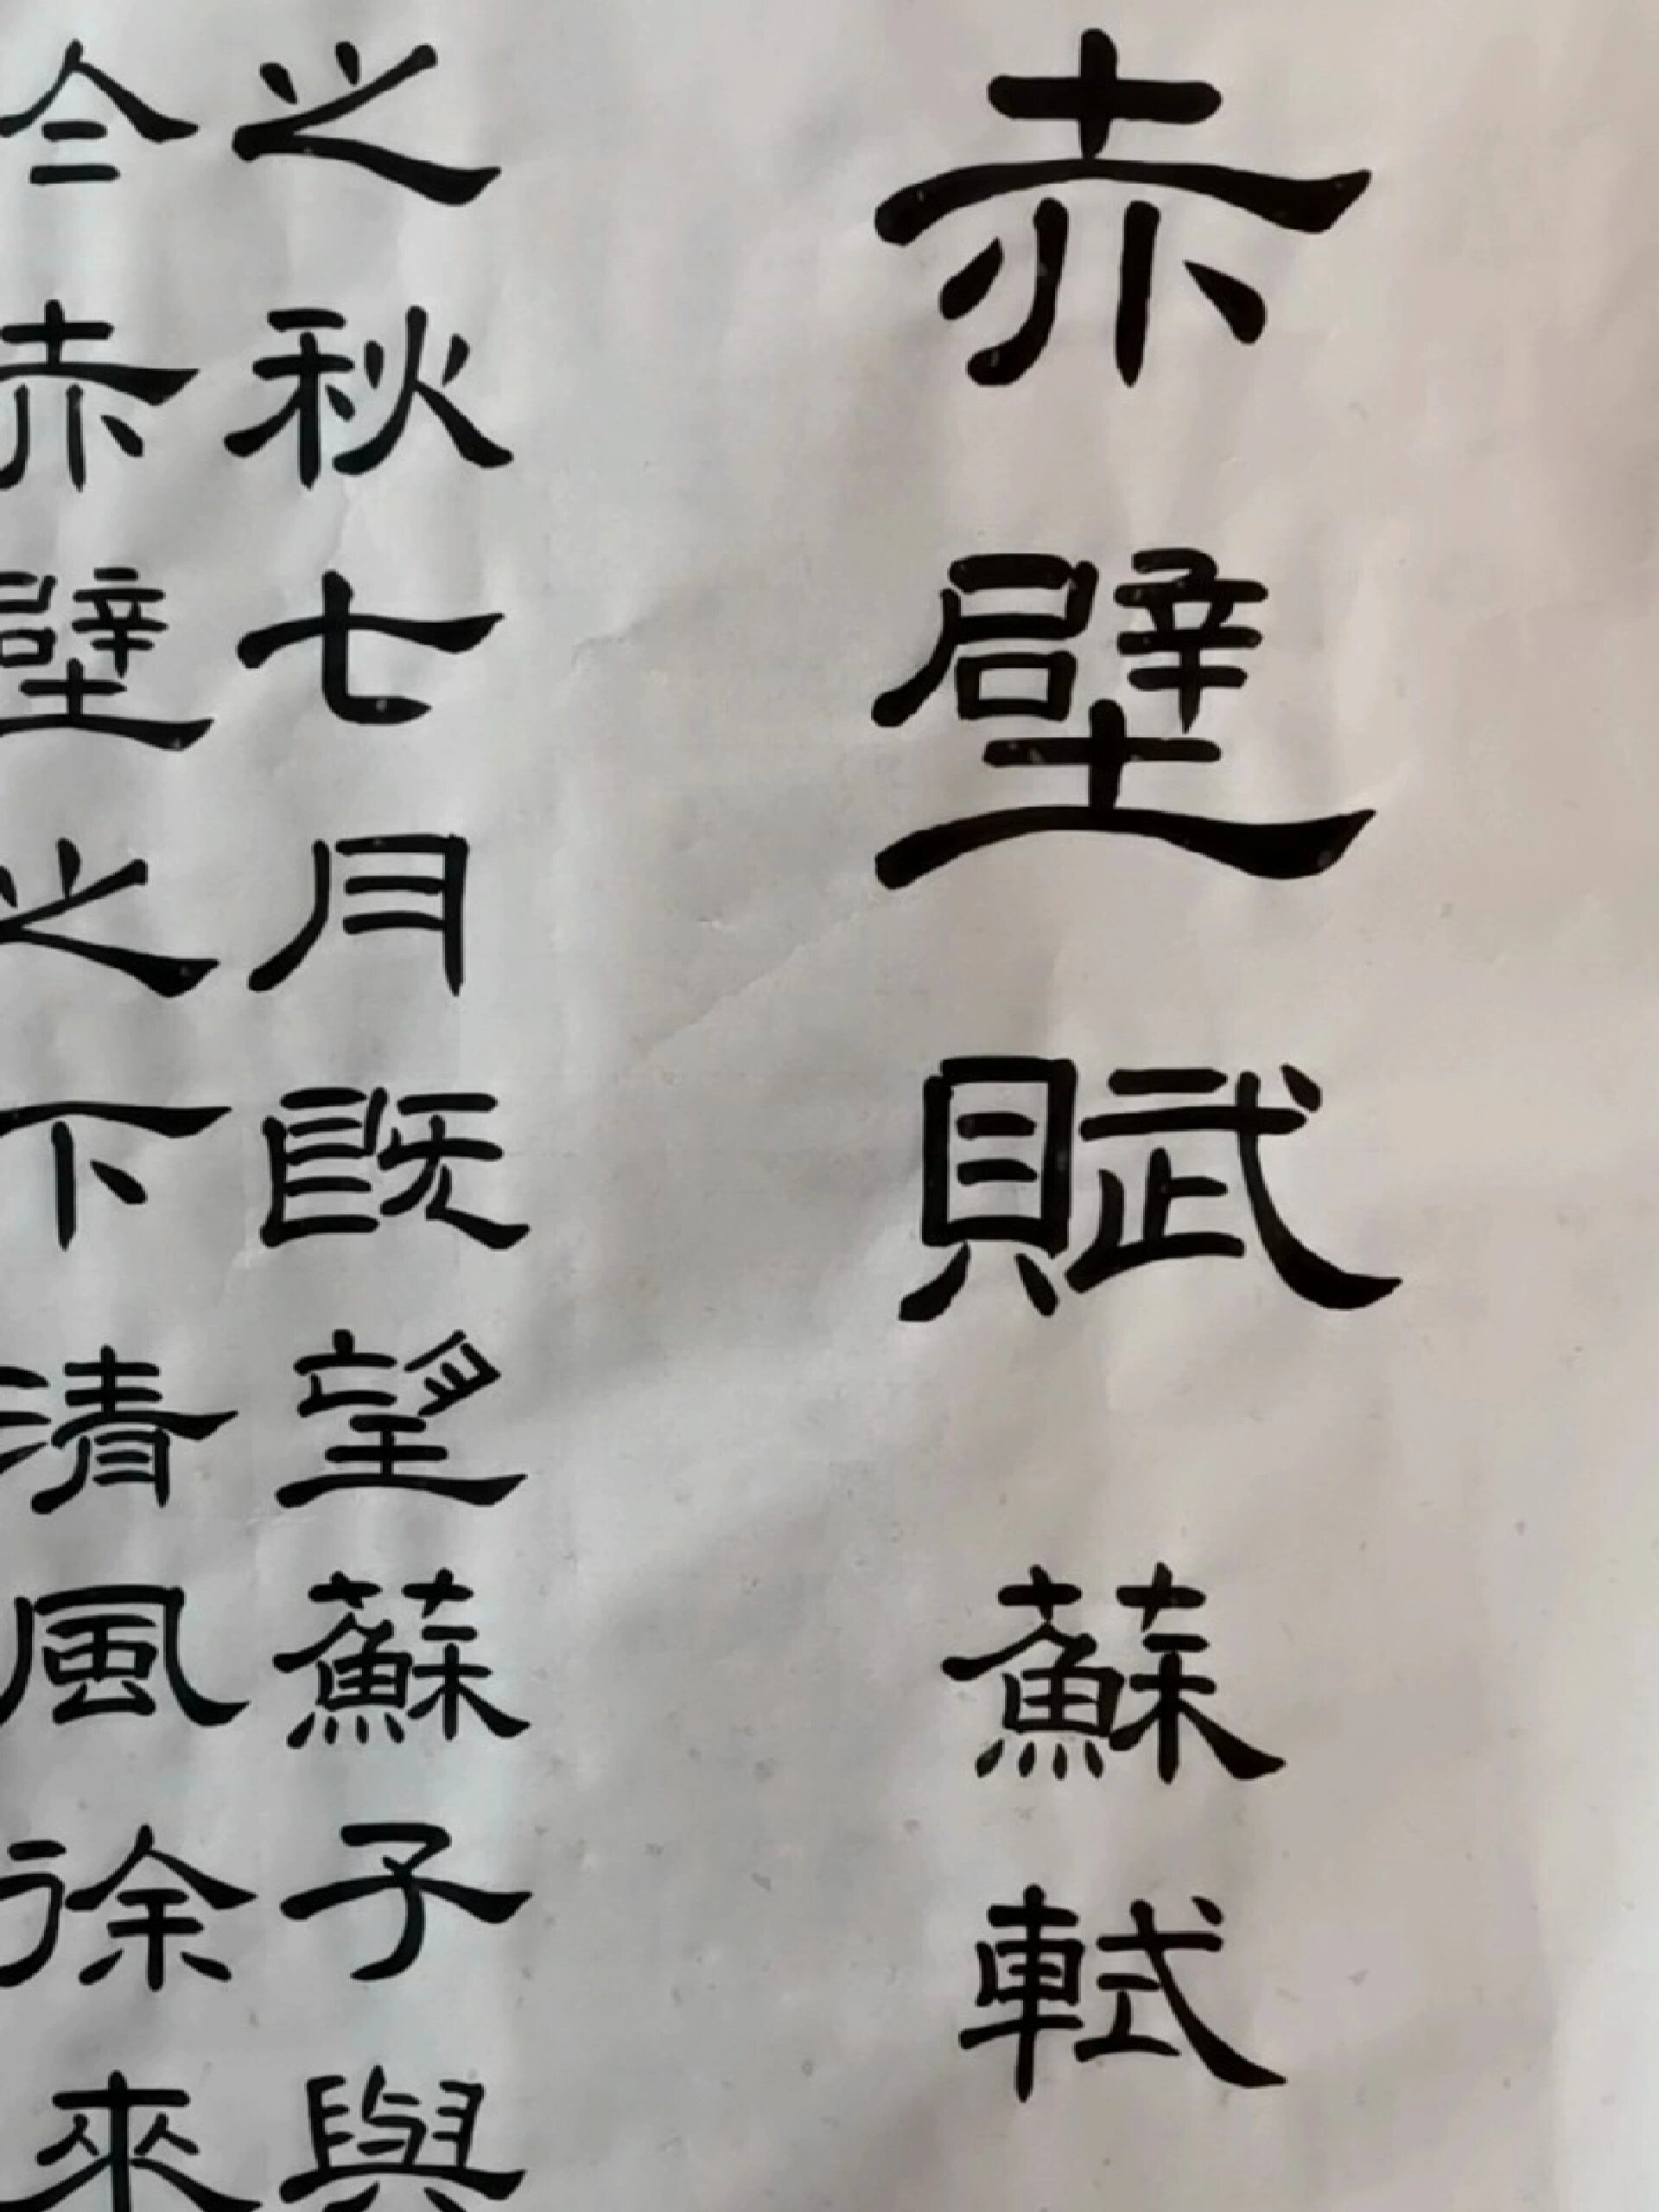 赤壁賦 蘇軾
之秋七月既望蘇子與
於赤壁之下清風徐來